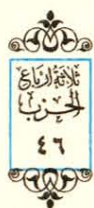 ثَلَاثَةُ أَرْبَاعِ
الحِزْبِ
٤٦